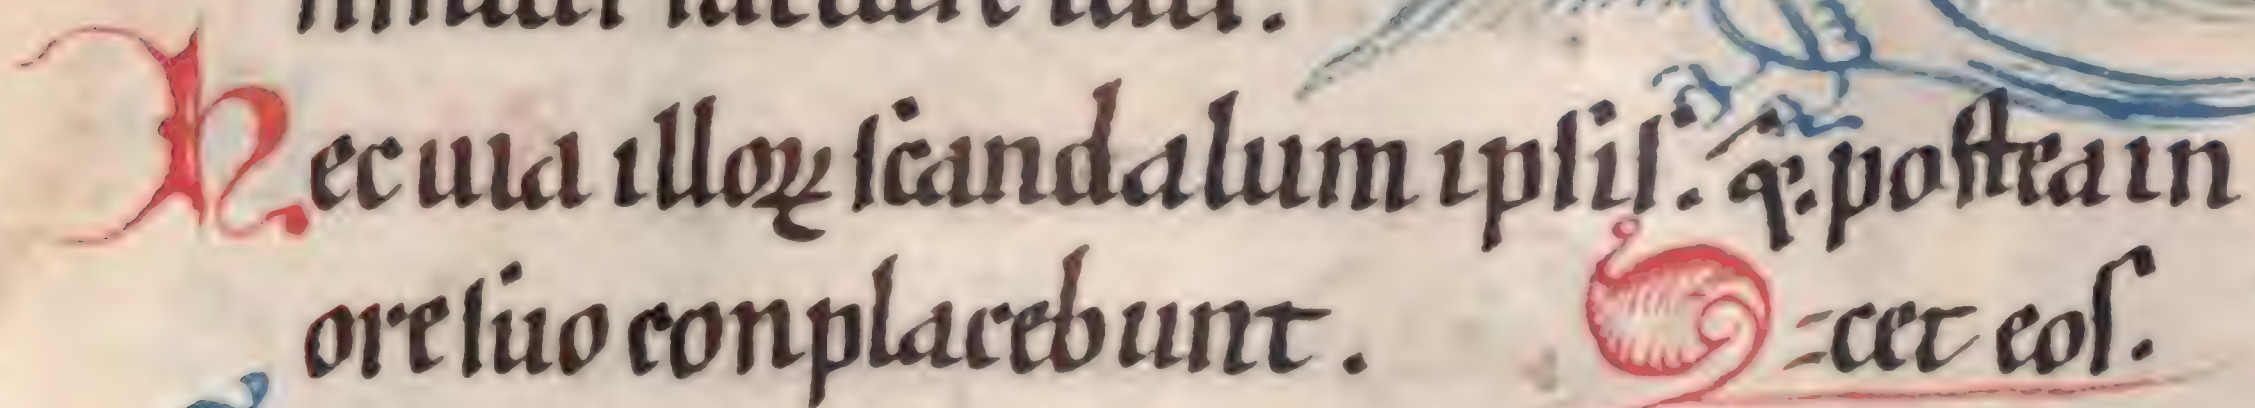 hec uia illoꝝ ſcandalum ipſiſ. & q̄. poſtea in
ore ſuo conplacebunt.
cet eoſ.